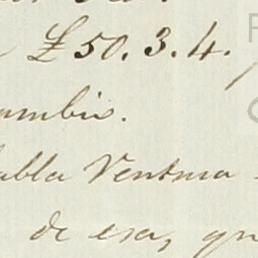 £50.3.4.
ambio.
abla Ventura
de esa, qu